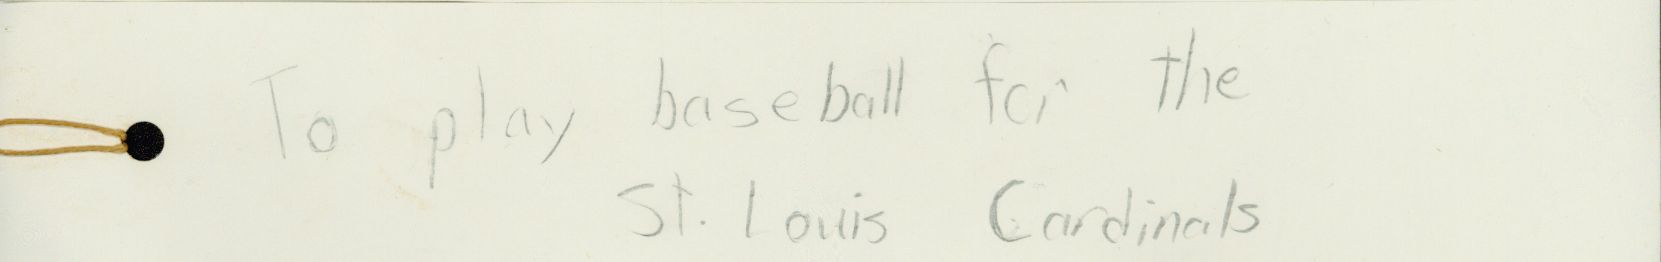 To play baseball for the
St. Louis Cardinals